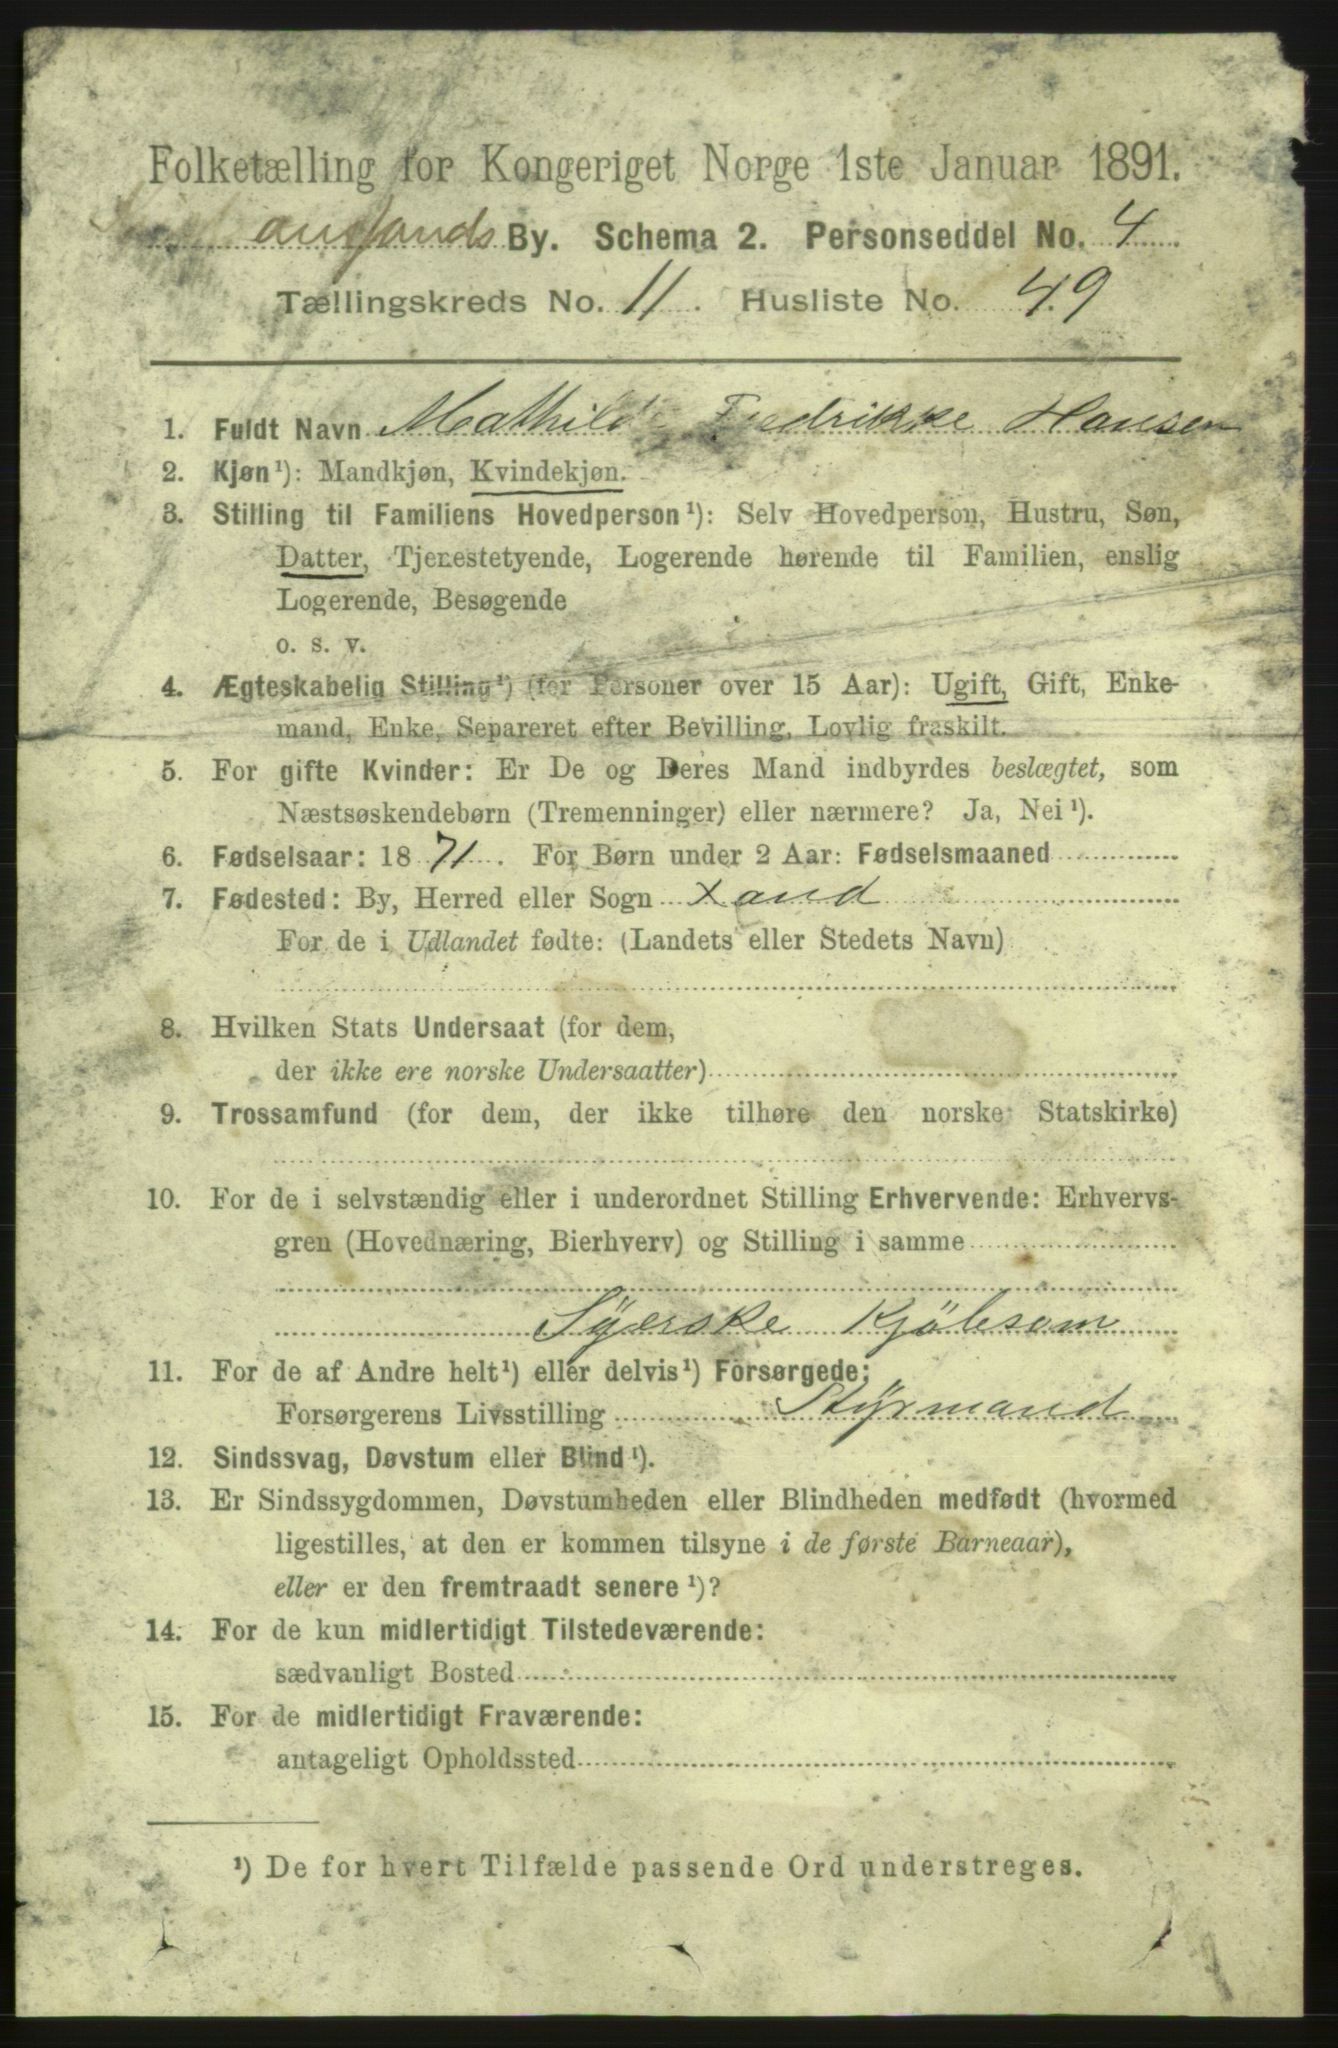 Folketælling for Kongeriget Norge 1ste Januar 1891.
By. Schema 2. Personseddel No. 4
Tællingskreds No. 11. Husliste No. 49
1. Fuldt Navn Mathilde Fredrikke Hansen
2. Kjøn¹): Mandkjøn, Kvindekjøn.
3. Stilling til Familiens Hovedperson¹): Selv Hovedperson, Hustru, Søn,
Datter, Tjenestetyende, Logerende hørende til Familien, enslig
Logerende, Besøgende
o. s. v.
4. Ægteskabelig Stilling¹) (for Personer over 15 Aar): Ugift, Gift, Enke-
mand, Enke, Separeret efter Bevilling, Lovlig fraskilt.
5. For gifte Kvinder: Er De og Deres Mand indbyrdes beslægtet, som
Næstsøskendebørn (Tremenninger) eller nærmere? Ja, Nei¹).
6. Fødselsaar: 1871. For Børn under 2 Aar: Fødselsmaaned
7. Fødested: By, Herred eller Sogn Xand
For de i Udlandet fødte: (Landets eller Stedets Navn)
8. Hvilken Stats Undersaat (for dem,
der ikke ere norske Undersaatter)
9. Trossamfund (for dem, der ikke tilhøre den norske Statskirke)
10. For de i selvstændig eller i underordnet Stilling Erhvervende: Erhvervs-
gren (Hovednæring, Bierhverv) og Stilling i samme
Syerske Kjölesøm
11. For de af Andre helt¹) eller delvis¹) Forsørgede:
Forsørgerens Livsstilling Styrmand
12. Sindssvag, Døvstum eller Blind¹).
13. Er Sindssygdommen, Døvstumheden eller Blindheden medfødt (hvormed
ligestilles, at den er kommen tilsyne i de første Barneaar),
eller er den fremtraadt senere¹)?
14. For de kun midlertidigt Tilstedeværende:
sædvanligt Bosted
15. For de midlertidigt Fraværende:
antageligt Opholdssted
¹) De for hvert Tilfælde passende Ord understreges.